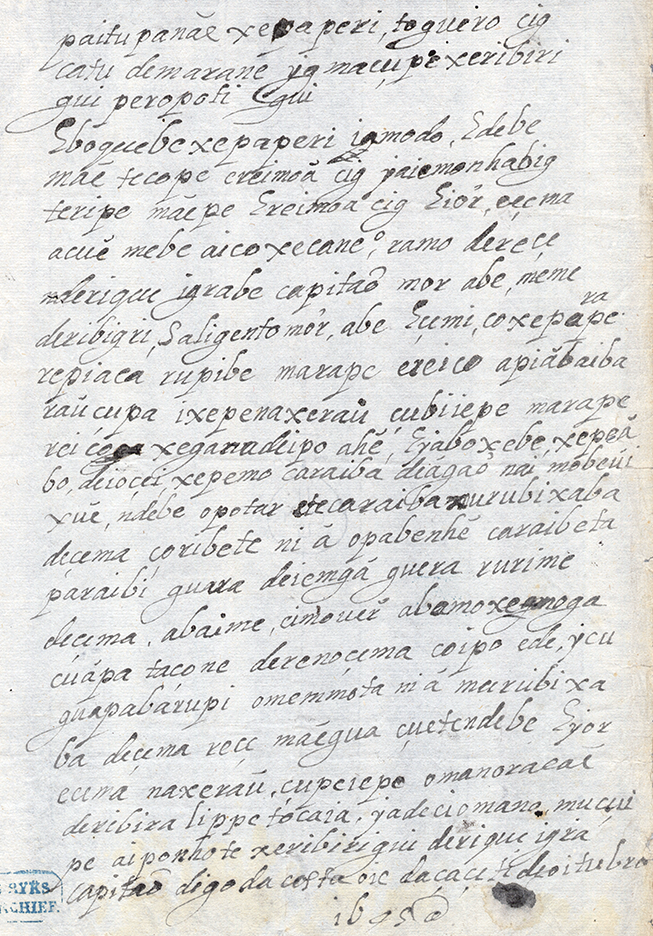 paitupanãe xepaperi, toguero cig
catu demarane yg macupi xeribiri
gui peropoti gui
Eboquebe xepaperi igmodo, Edebe
mãe tecope ereimoã cig paiemonhabig
teripe mãepe Ereimoã cig Eior, ecema
acuẽ mebe aico xecane, ramo derece
nderique igrabe capitaõ mor abe, meme
deribigri, Saligento mor, abe Ecumi, coxepa ra pe
repiaca rupibe marape ereico apiãbaiba
raucupa ixepenaxeraũ cubiiepe marape
rei xeganadeipo ahẽ, Eyabo xebe, xepeã
bo, deiocei xepemo caraiba diagaõ nai mobeũi
xuẽ, ndebe opotar caraiba murubixaba
decema coribete ni ã opabenhẽ caraibeta
paraibi guara deiemga guera rurime
decema, abaime, cimouer abamo
cuãpa tacone derenocema coipo ede, ycu
guapabarupi omemmota ni ã murubixa
ba decema rece maẽgua cuetendebe Eyor
ecema naxeraũ, cupeiepe omanoracaẽ
deribira lippe tocaia, yadeciomano, mucui
pe aiponhote xeribiri gui derique igra
capitaõ digo da costa oie dacaceti deoitubro